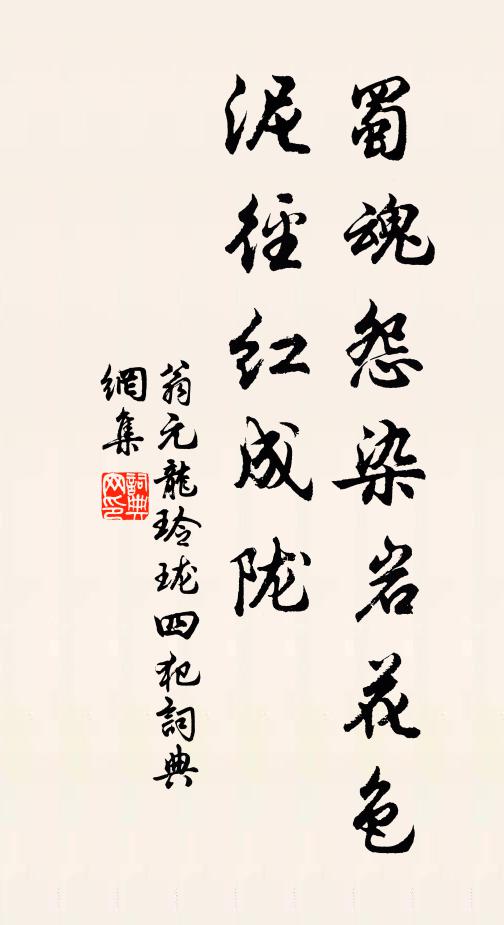 蜀魂怨染岩花色
泥径红成陇
翁元龍玲珑四犯詞典
網集
詞典
网印